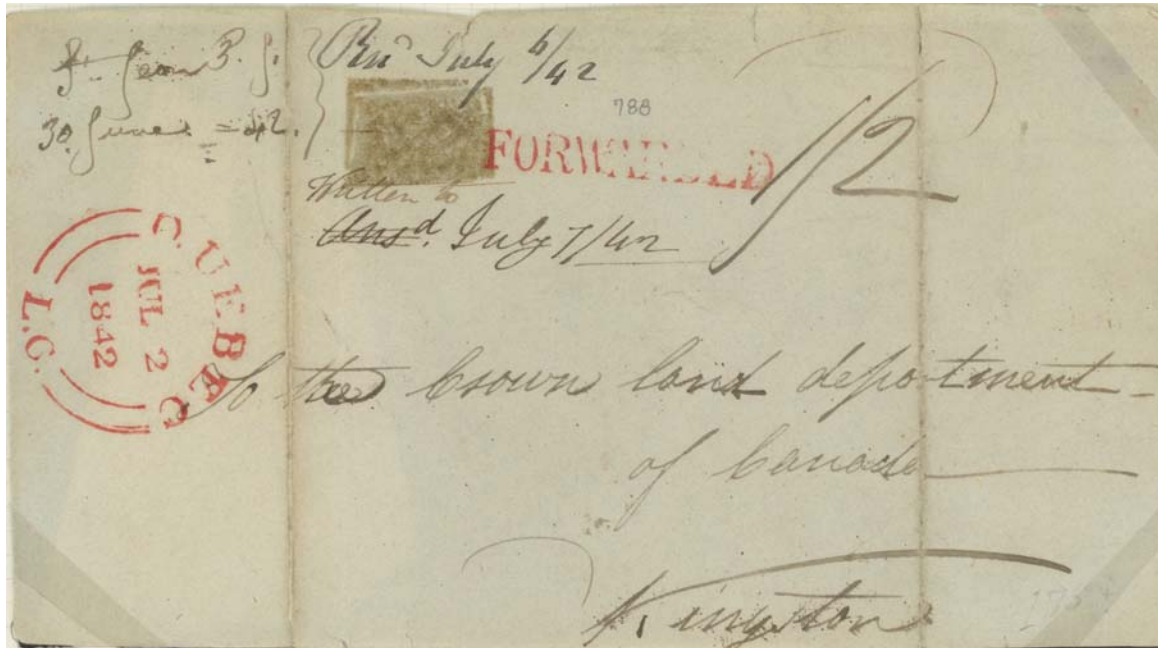 St Jean P. J.
30 June = 42.
Rec^d July 6/42
788
FORWARDED
1/2
Written to
Ans^d. July 7/42
QUEBEC
JUL 2
1842
L.C.
To the Crown land department
of Canada
Kingston